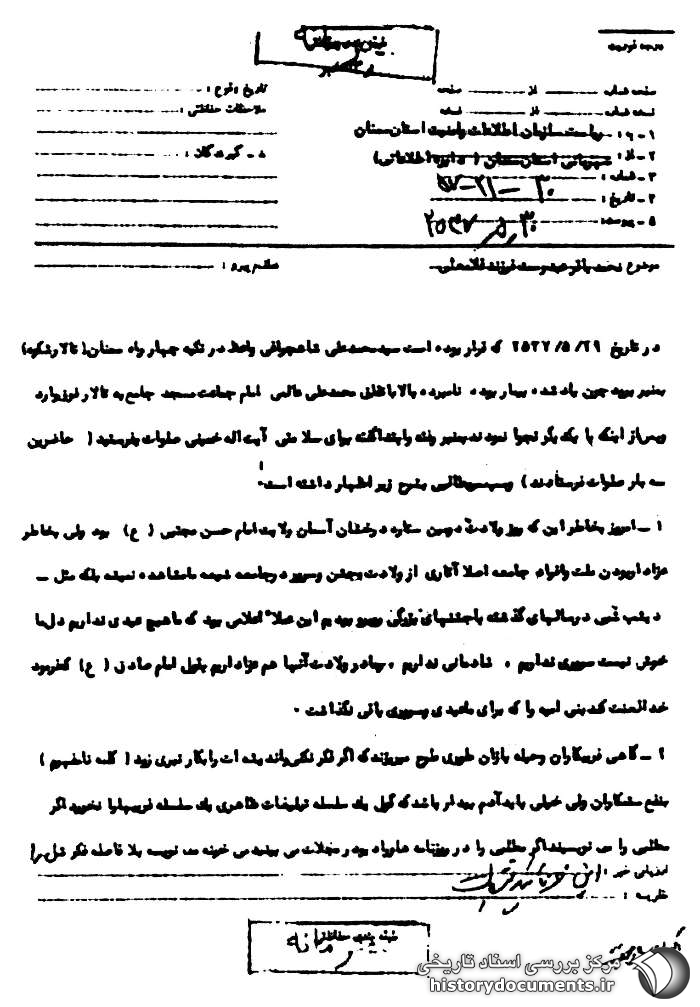 درجه فوریت
طبقه‌بندی حفاظتی
صفحه شماره از صفحه
نسخه شماره از نسخه
تاریخ وقوع :
ملاحظات حفاظتی :
۱ - به : ریاست سازمان اطلاعات و امنیت استان سمنان
۲ - از : شهربانی استان سمنان ( دایره اطلاعاتی )
۳ - شماره :
۴ - تاریخ :
۵ - پیوست :
۸ - گیرندگان :
موضوع محمد باقر عبدوست فرزند غلامعلی
عطف پیرو :
در تاریخ ۲۵۳۷/۵/۲۹ که قرار بوده است سید محمد علی شاهچراغی واعظ در تکیه چهار راه سمنان ( تالار شکوه )
بمنبر برود چون یاد شده بیمار بوده نامبرده بالا باتفاق محمد علی عالمی امام جماعت مسجد جامع به تالار فوق وارد
و پس از اینکه با یکدیگر نجوا نمودند بمنبر رفته و ابتدا گفته برای سلامتی آیت اله خمینی صلوات بفرستید ( حاضرین
سه بار صلوات فرستادند ) و سپس مطالبی بشرح زیر اظهار داشته است .
۱ - امروز بخاطر این که روز ولادت دومین ستاره درخشان آسمان ولایت امام حسن مجتبی ( ع ) بود ولی بخاطر
عزادار بودن ملت و افراد جامعه اصلا آثاری از ولادت و جشن و سرور در جامعه شیعه ما مشاهده نمیشه بلکه مثل -
دیشب شبی در سالهای گذشته با جشنهای بزرگی روبرو بودیم این عملا اعلامی بود که ما هیچ عیدی نداریم دل‌ما
خوش نیست سروری نداریم . شادمانی نداریم . و ما در ولادت آنها هم عزاداریم بقول امام صادق ( ع ) که فرمود
خدا لعنت کند بنی امیه را که برای ما عیدی و سروری باقی نگذاشت .
۲ - گاهی فریبکاران و حیله بازان طوری طرح میریزند که اگر فکر نکنی و اندیشه ات را بکار نبری زود ( کلمه نامفهوم )
بنفع ستمکاران ولی خیلی باید آدم بیدار باشد که گول یک سلسله تبلیغات ظاهری یک سلسله فریبها را نخورید اگر
مطلبی را می نویسند اگر مطلبی را در روزنامه ها و رادیو و در مجلات می بینید می خونه می نویسه بلا فاصله فکر قبل را
ارزیابی خبر :
نظریه :
طبقه بندی حفاظتی
مرکز بررسی اسناد تاریخی
historydocuments.ir